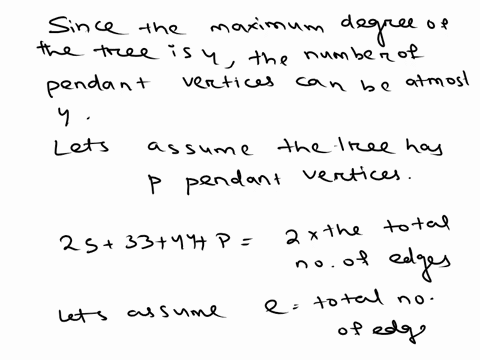 Since the maximum degree of
the tree is 4, the number of
pendant vertices can be atmost
4.
Lets assume the tree has
p pendant vertices.
25+33+44+P = 2 x the total
no. of edges
Lets assume e = total no.
of edge